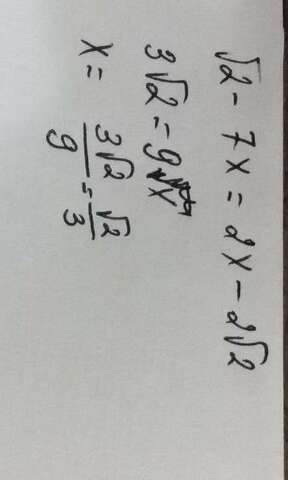 √2 - 7x = 2x - 2√2
3√2 = 9x
x = 3√2/9 = √2/3